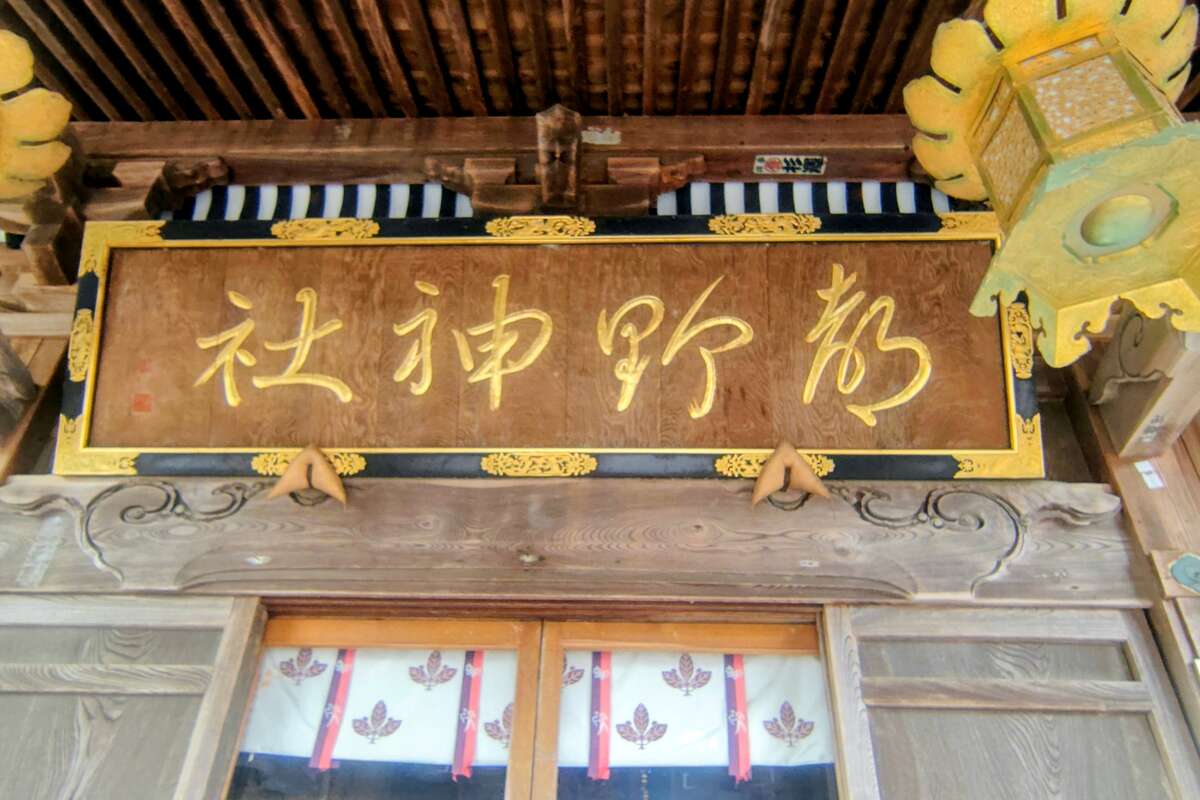 都野神社